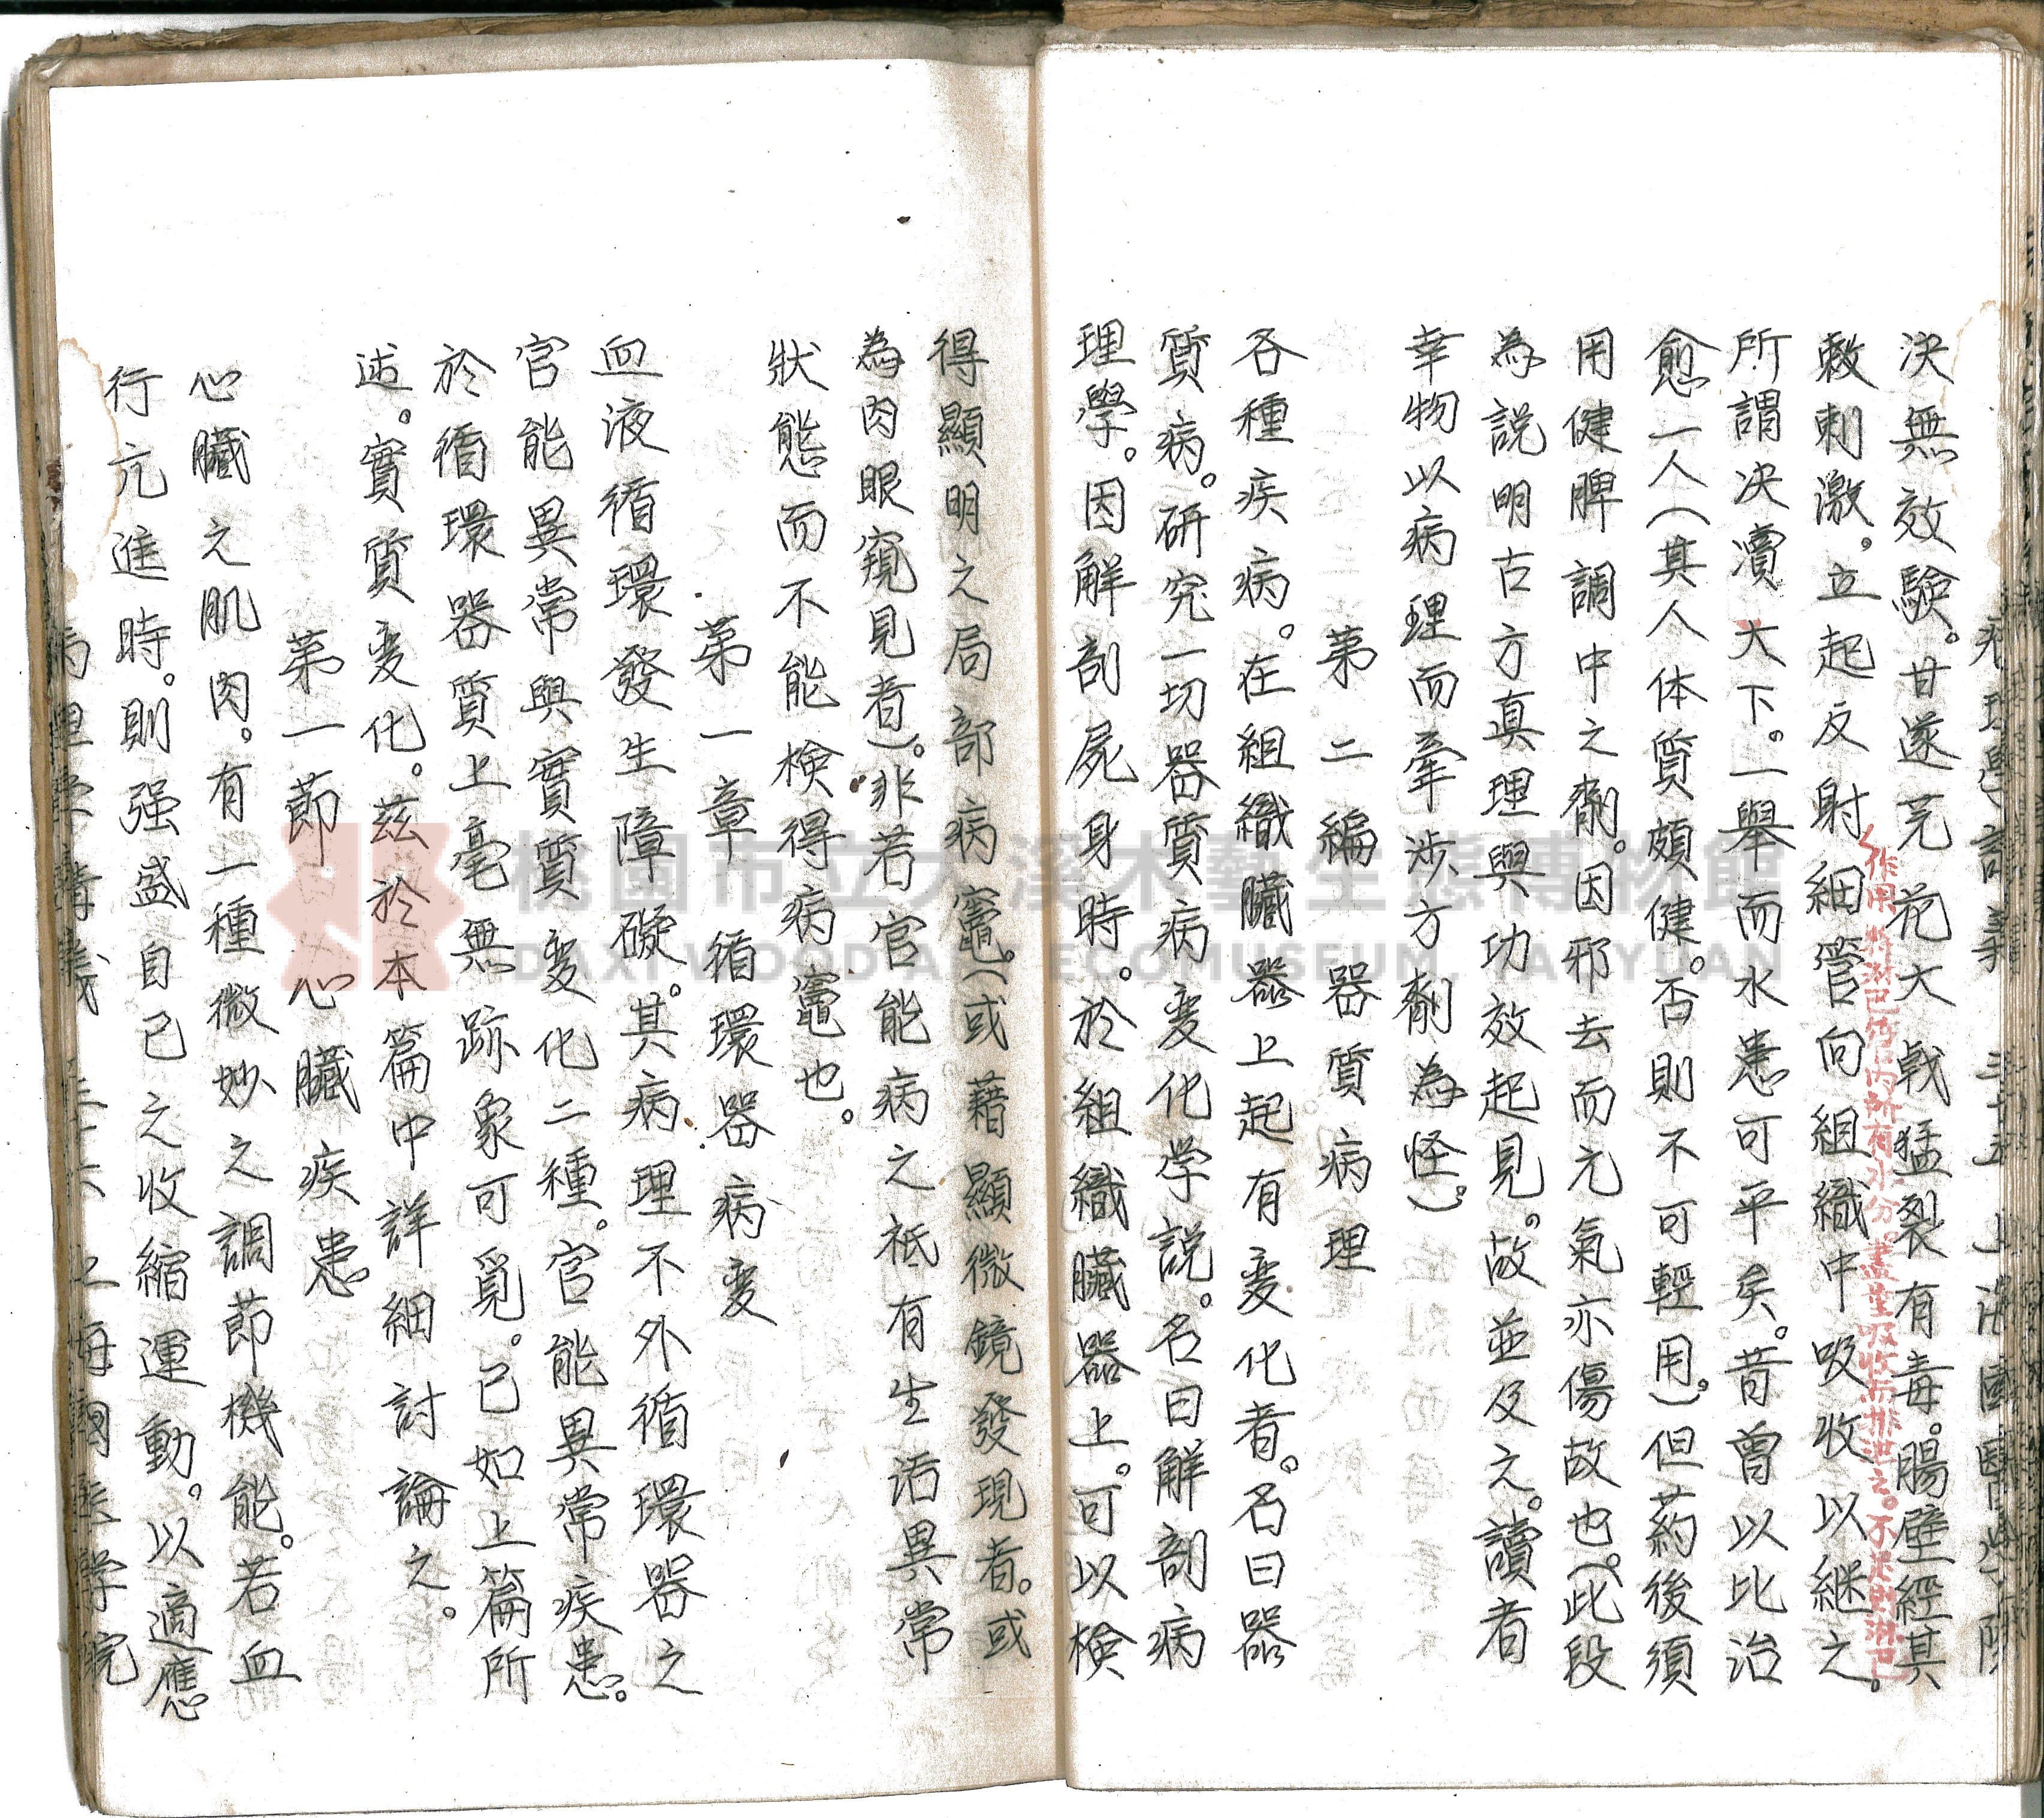 病理學講義　三十五　上海國醫學院
決無效驗。甘遂芫花大戟猛裂有毒。腸壁經其
敕刺激，立起反射細管向組織中吸收以継之。
作用將淋巴管內所有水分。盡量吸收而排泄之。不足則淋巴
所謂决瀆大下。一舉而水患可平矣。昔曾以比治
愈一人（其人体質頗健。否則不可輕用。）但葯後須
用健脾調中之劑。因邪去而元氣亦傷故也（。此段
為説明古方真理與功效起見。故並及之。讀者
幸物以病理而牽涉方劑為怪）。
第二編　器質病理
各種疾病。在組織臟器上起有变化者。名曰器
質病。研究一切器質病变化学説。名曰解剖病
理學。因解剖屍身時。於組織臟器上。可以検
得顯明之局部病竈。（或藉顯微鏡發現者。或
為肉眼窺見者）。非若官能病之祇有生活異常
狀態而不能検得病竈也。
第一章　循環器病变
血液循環發生障礙。其病理不外循環器之
官能異常與實質变化二種。官能異常疾患。
於循環器質上毫無跡象可覓。已如上篇所
述。實質变化。茲於本篇中詳細討論之。
第一節　心臟疾患
心臟之肌肉。有一種微妙之調節機能。若血
行亢進時。則强盛自已之收縮運動。以適應
病理學講義　三十六　上海國医学院
桃園市立大溪木藝生態博物館
DAXI WOOD ART ECOMUSEUM, TAOYUAN